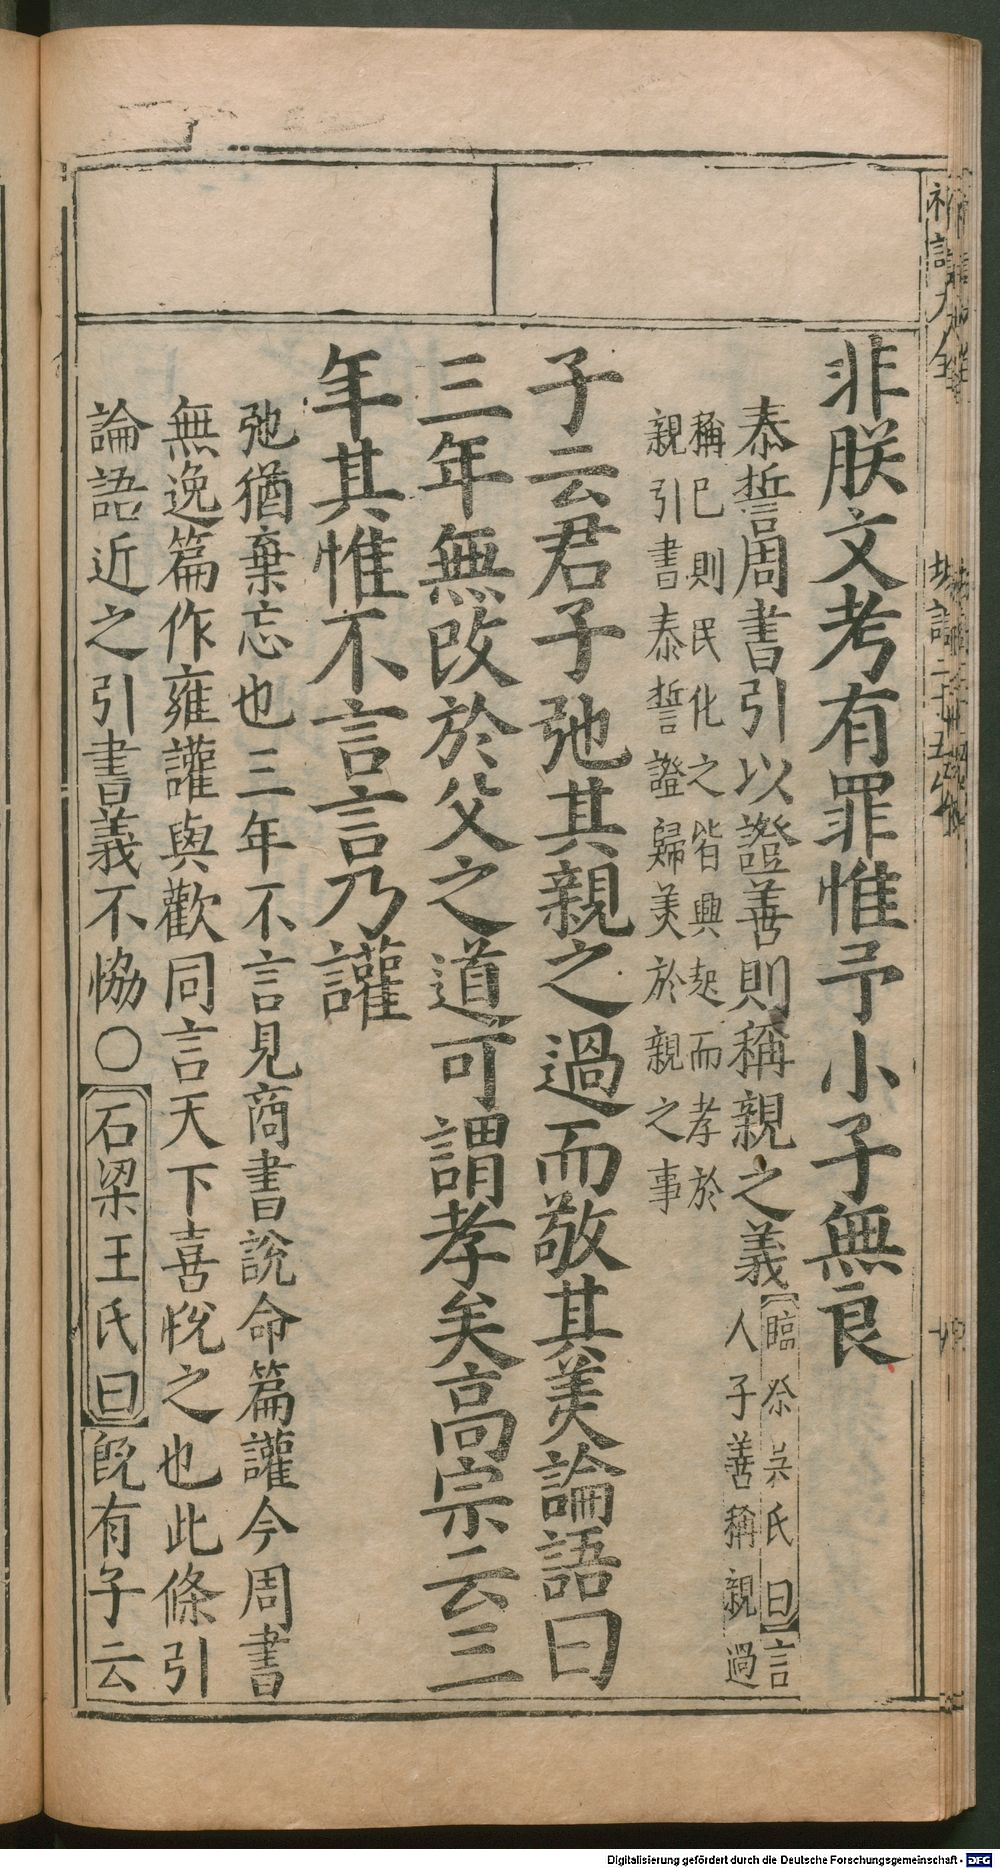 非朕文考有罪惟予小子無良
泰誓周書引以證善則稱親之義臨溪吳氏曰言
人子善稱親過
稱已則民化之皆興起而孝於
親引書泰誓證歸美於親之事
子云君子弛其親之過而敬其美論語曰
三年無改於父之道可謂孝矣高宗云三
年其惟不言言乃讙
弛猶棄忘也三年不言見商書說命篇讙今周書
無逸篇作雍讙與歡同言天下喜悅之也此條引
論語近之引書義不恊○石梁王氏曰旣有子云
Digitalisierung gefördert durch die Deutsche Forschungsgemeinschaft - DFG